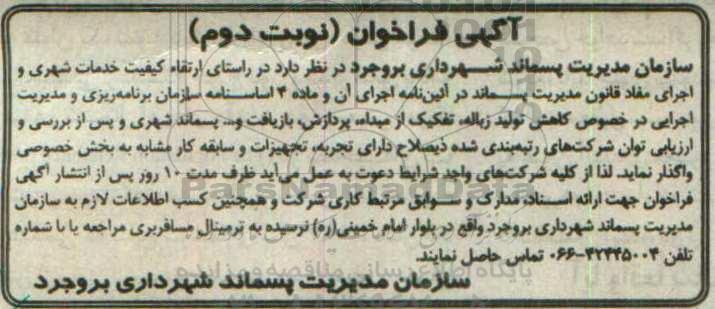 آگهی فراخوان (نوبت دوم)
سازمان مدیریت پسماند شهرداری بروجرد در نظر دارد در راستای ارتقاء کیفیت خدمات شهری و
اجرای مفاد قانون مدیریت پسماند در آئین‌نامه اجرای آن و ماده ۴ اساسنامه سازمان برنامه‌ریزی و مدیریت
اجرایی در خصوص کاهش تولید زباله، تفکیک از مبداء، پردازش، بازیافت و... پسماند شهری و پس از بررسی و
ارزیابی توان شرکت‌های رتبه‌بندی شده ذیصلاح دارای تجربه، تجهیزات و سابقه کار مشابه به بخش خصوصی
واگذار نماید. لذا از کلیه شرکت‌های واجد شرایط دعوت به عمل می‌آید ظرف مدت ۱۰ روز پس از انتشار آگهی
فراخوان جهت ارائه اسناد، مدارک و سوابق مرتبط کاری شرکت و همچنین کسب اطلاعات لازم به سازمان
مدیریت پسماند شهرداری بروجرد واقع در بلوار امام خمینی(ره) نرسیده به ترمینال مسافربری مراجعه یا با شماره
تلفن ۴۲۴۴۵۰۰۴-۰۶۶ تماس حاصل نمایند.
سازمان مدیریت پسماند شهرداری بروجرد
ParsNamadData
پایگاه اطلاع رسانی مناقصه و مزایده